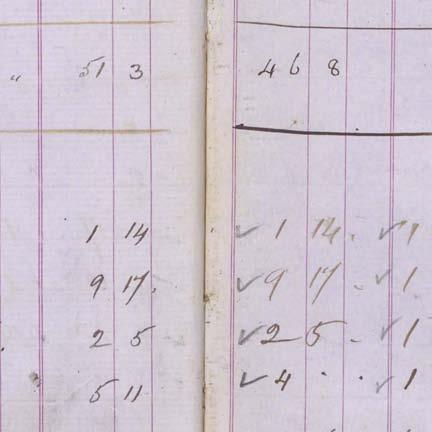 " 51 3 46 8
1 14 ✓ 1 14 . ✓ 1
9 17 . ✓ 9 17 . ✓ 1
2 5 ✓ 2 5 . ✓ 1
5 11 ✓ 4 . . ✓ 1